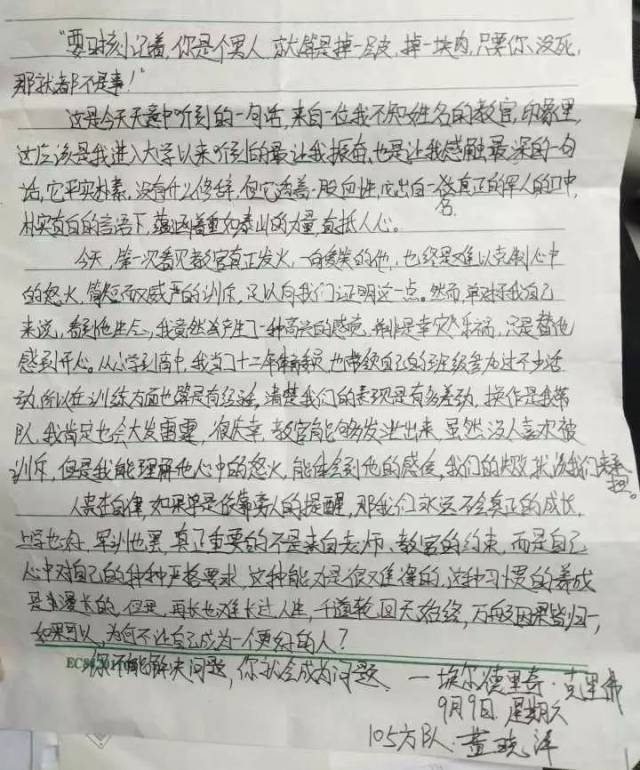 “要时刻记着,你是个男人,就算是掉一层皮,掉一块肉,只要你没死,
那就都不是事!”
这是今天无意中听到的一句话,来自一位我不知姓名的教官,印象里,
这应该是我进入大学以来听到的最让我振奋,也是让我感触最深的一句
话,它平实朴素,没有什么修辞,但它洋溢着一股血性,它出自一名真正的军人的口中,
朴实直白的言语下,蕴涵着重如泰山的力量,直抵人心。
今天,第一次看见教官真正发火,一向爱笑的他,也终是难以克制心中
的怒火,简短而又威严的训斥,足以向我们证明这一点。然而,单对于我自己
来说,看到他生气,我竟然会产生了一种高兴的感觉,并非是幸灾乐祸,只是替他
感到开心。从小学到高中,我当了十二年体育委员,也带领自己的班级参加过不少活
动,所以在训练方面也算是有经验,清楚我们的表现是有多差劲,换作是我带
队,我肯定也会大发雷霆,很庆幸,教官能够发泄出来,虽然没人喜欢被
训斥,但是我能理解他心中的怒火,能体会到他的感受,我们的失败,就该我们来承担。
人贵在自律,如果单是依靠旁人的提醒,那我们永远不会真正的成长,
上学也好,军训也罢,真正重要的不是来自老师、教官的约束,而是自己
心中对自己的种种严格要求,这种能力是很难得的,这种习惯的养成
是漫长的,但是,再长也难长过人生,千道轮回天始终,万般因果皆归一,
如果可以,为何不让自己成为一个更好的人?
你不能解决问题,你就会成为问题。—埃尔德里奇·克里佛
9月9日 星期六
105方队:董晓洋